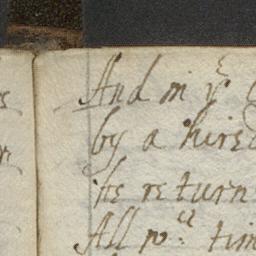 And in yᵉ
by a hired
he return
All wᶜʰ tim